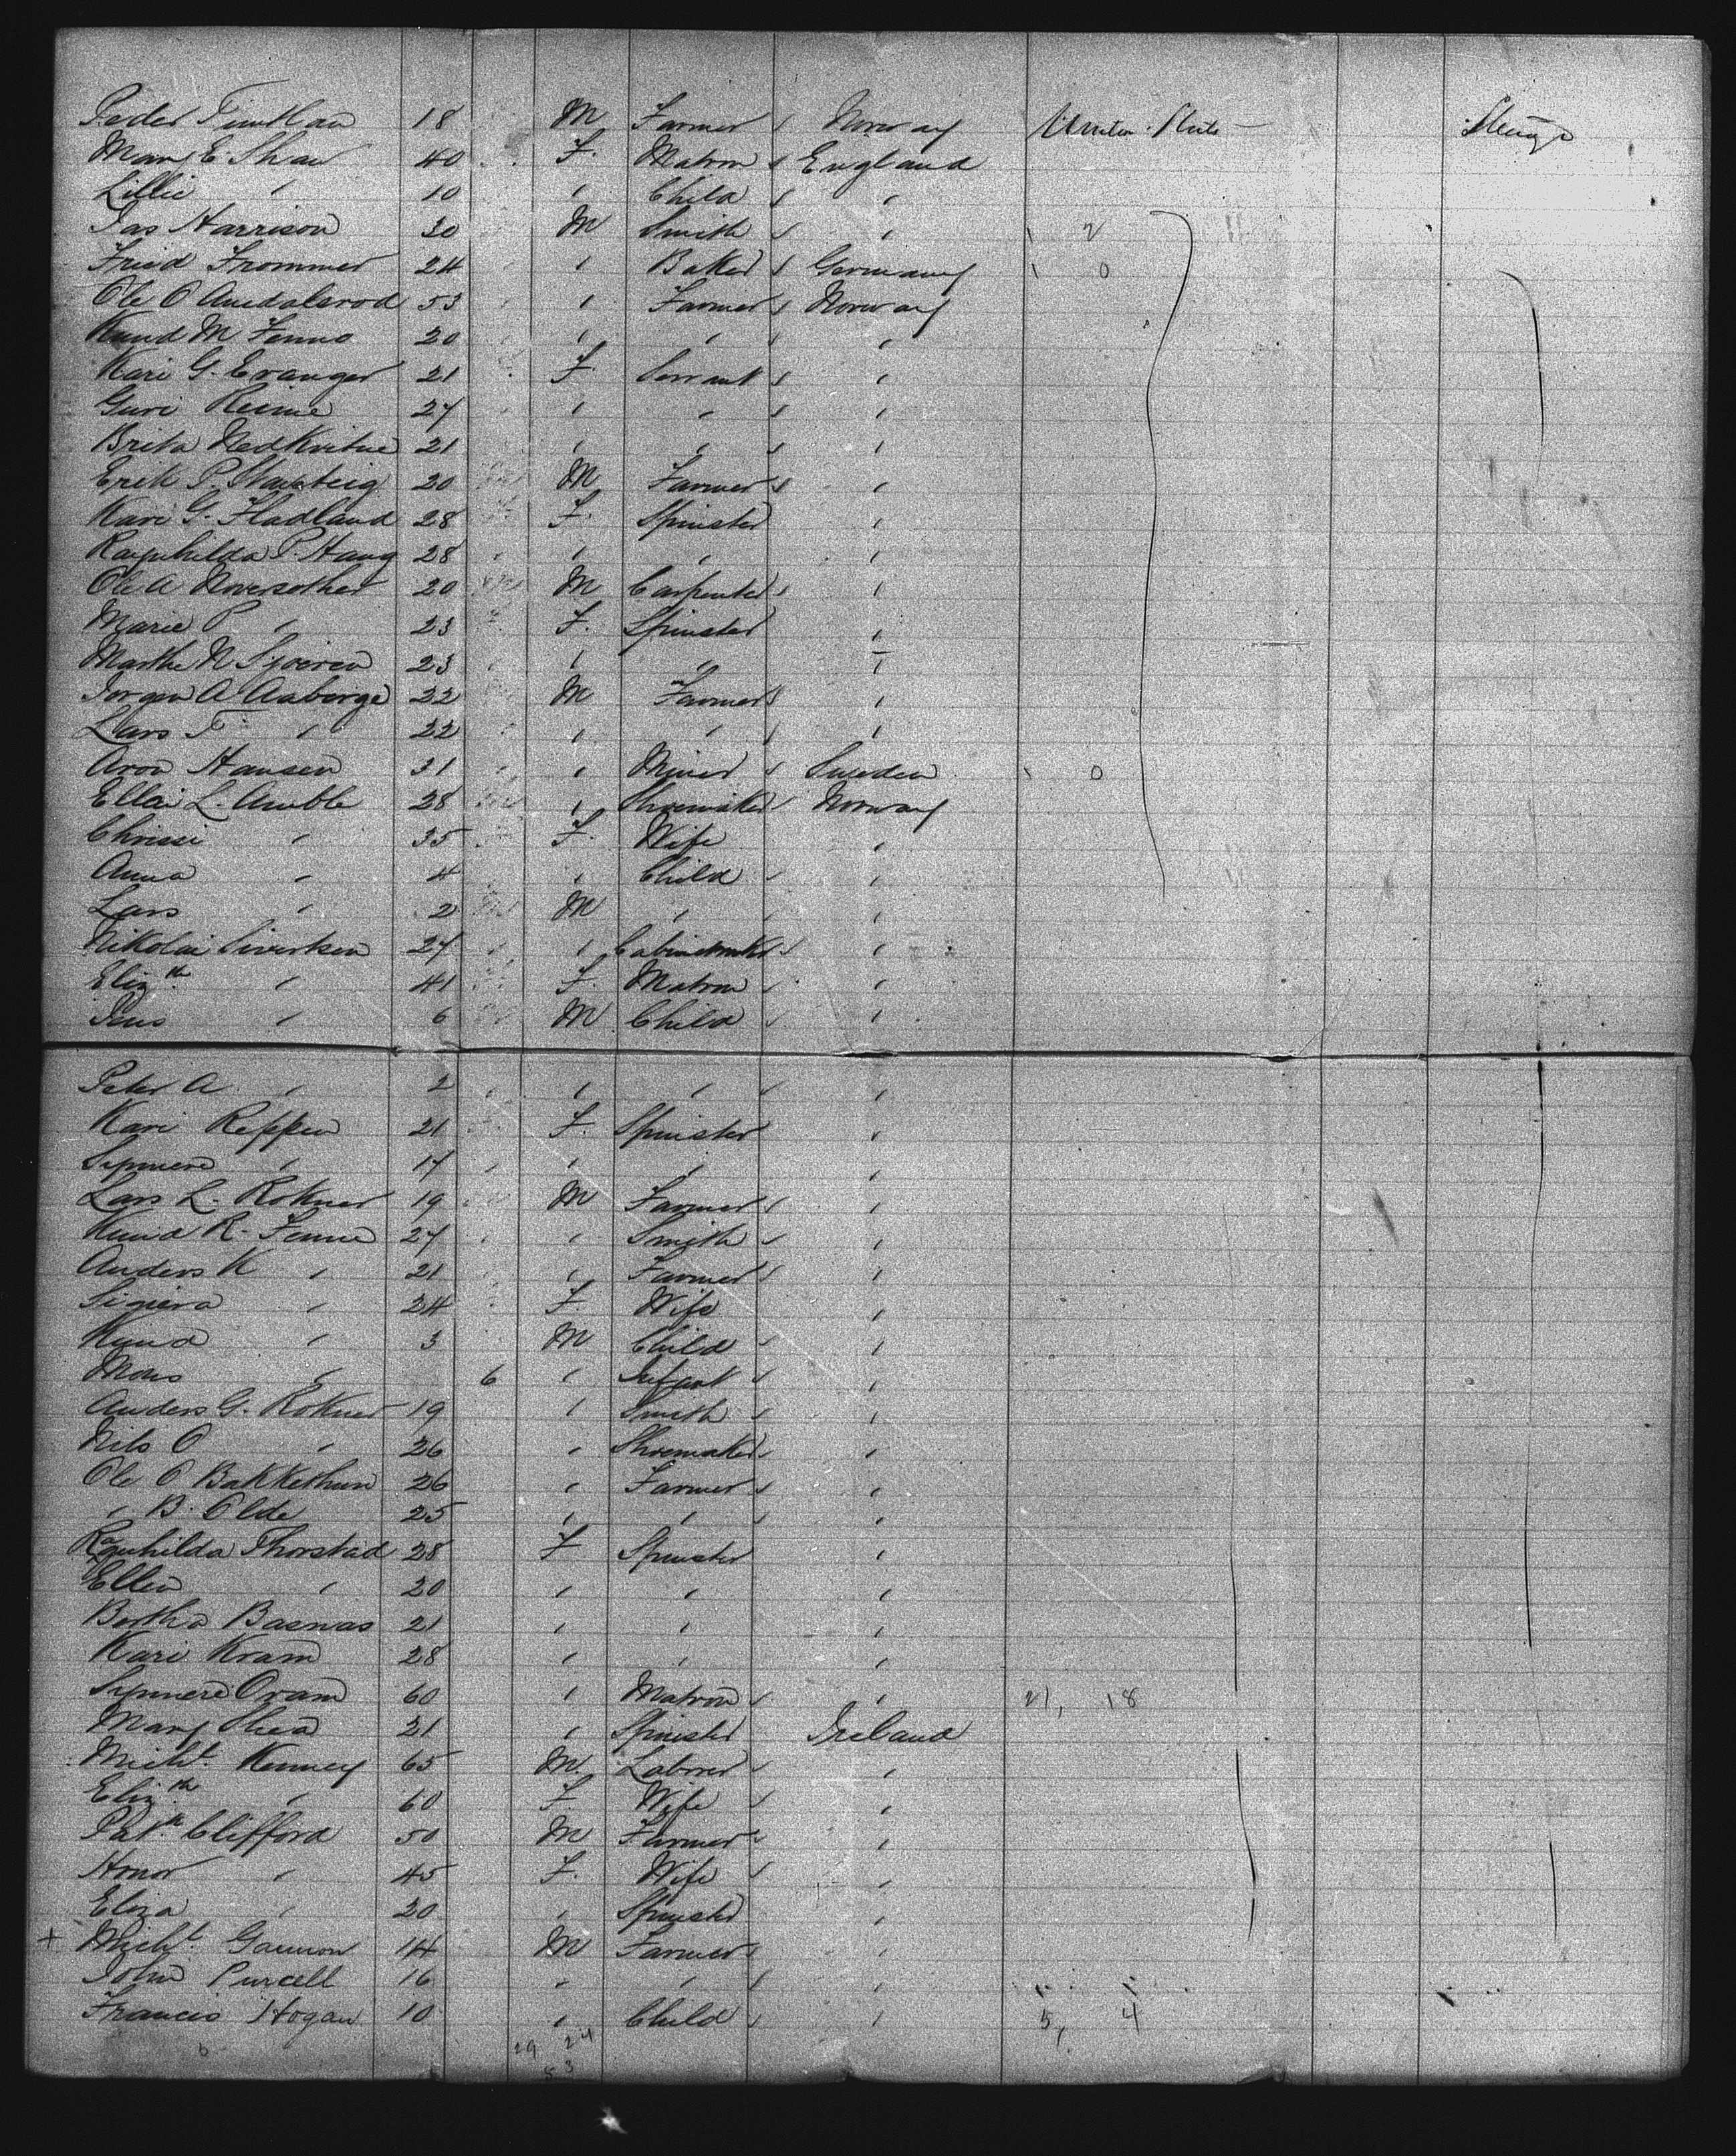 Peder Timkan 18 M Farmer Norway United States Steerage
Mary E. Shaw 40 F. Matron England
Lillie " 10 " Child "
Jas Harrison 30 M Smith " 1 2
Fried Frommer 24 " Baker Germany 1 0
Ole O Amdalsrod 53 " Farmer Norway
Knud M Fenno 20 " " "
Kari G. Evanger 21 F. Servant "
Guri Reime 27 " " "
Brita Nedkvitne 21 " " "
Erik P. 20 M Farmer "
Kari G. Fladland 28 F. Spinster "
Ragnhilda P. Haug 28 " " "
Ole A 20 M Carpenter "
Marie P " 23 F. Spinster "
Marthe N 23 " " "
Jorgen A Aaberge 22 M Farmer "
Lars T " 22 " " "
Aron Hansen 31 " Miner Sweden 1 0
L. Amble 28 " Shoemaker Norway
Chrissi " 35 F. Wife "
Anna " 4 " Child "
Lars " 2 M " "
Nikolai Sivertsen 27 " Cabinetmaker "
Elizth " 41 F. Matron "
Jens " 6 M Child "
Peter A " 2 " " "
Kari Rippen 21 F. Spinster "
Synneve " 17 " " "
Lars L. Rokner 19 M Farmer "
Knud R. Fenne 27 " Smith "
Anders K " 21 " Farmer "
" 24 F. Wife "
Knud " 3 M Child "
Mons " 6 " Infant "
Anders G. Rokner 19 " Smith "
Nils O " 26 " Shoemaker "
Ole O Bakkethun 26 " Farmer "
" B. Olde 25 " " "
Ragnhilda Thorstad 28 F Spinster "
Ellen " 20 " " "
Bertha Basnas 21 " " "
Kari Kram 28 " " "
Synnere Oram 60 " Matron " 21, 18
Mary Shea 21 " Spinster Ireland
Michl. Kenney 65 M. Laborer "
Elizth " 60 F. Wife "
Patk. Clifford 50 M Farmer "
Honor " 45 F. Wife "
Eliza " 20 " Spinster "
+ Michl. Gannon 14 M Farmer "
John Purcell 16 " " "
Francis Hogan 10 " Child " 5, 4
6 29 24
5 3